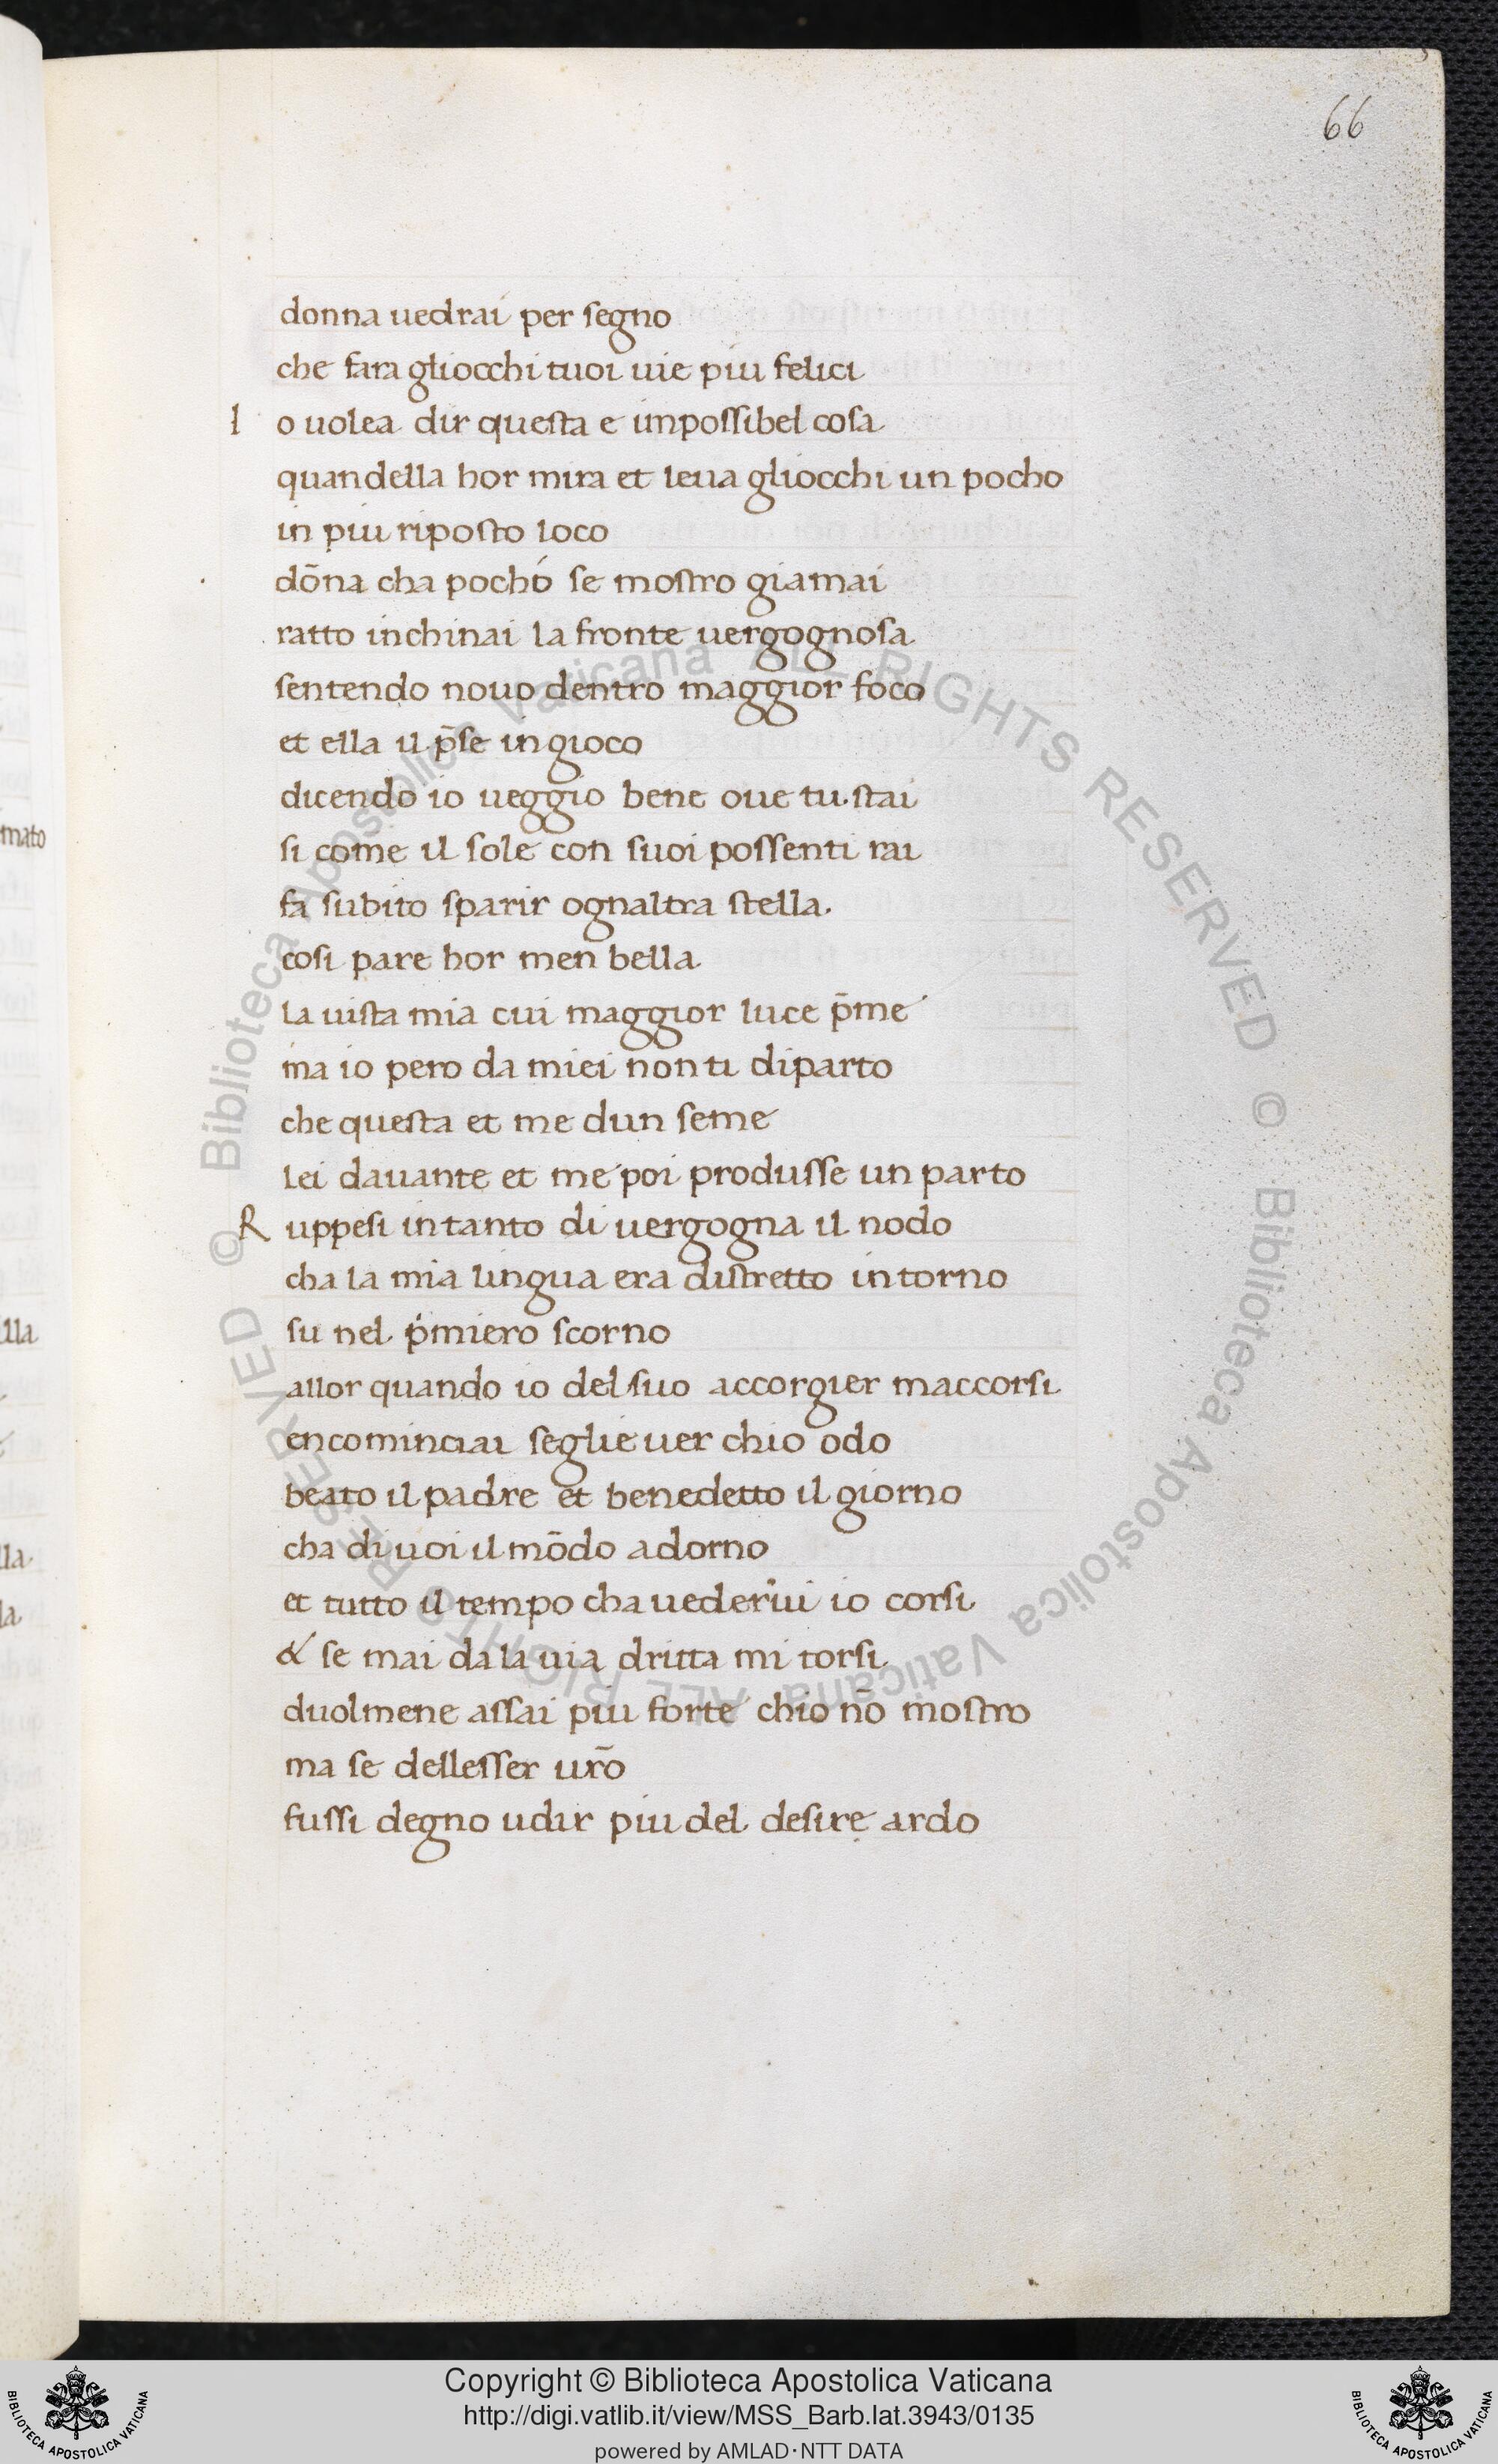 66
donna uedrai per segno
che fara gliocchi tuoi uie piu felici
I o uolea dir questa e impossibel cosa
quandella hor mira et leua gliocchi un pocho
in piu riposto loco
dōna cha pocho se mostro giamai
ratto inchinai la fronte uergognosa
sentendo nouo dentro maggior foco
et ella il p̄se in gioco
dicendo io ueggio bene oue tu stai
si come il sole con suoi possenti rai
fa subito sparir ognaltra stella.
cosi pare hor men bella
la uista mia cui maggior luce p̄me
ma io pero da miei non ti diparto
che questa et me dun seme
lei dauante et me poi produsse un parto
R uppesi intanto di uergogna il nodo
cha la mia lingua era distretto intorno
su nel p̍miero scorno
allor quando io del suo accorgier maccorsi
encominciai seglie uer chio odo
beato il padre et benedetto il giorno
cha di uoi il mōdo adorno
et tutto il tempo cha uederui io corsi
& se mai da la uia dritta mi torsi
duolmene assai piu forte chio nō mostro
ma se dellesser ur̄o
fussi degno udir piu del desire ardo
mato
lla
lla
la
© Biblioteca Apostolica Vaticana ALL RIGHTS RESERVED © Biblioteca Apostolica Vaticana ALL RIGHTS RESERVED
Copyright © Biblioteca Apostolica Vaticana
http://digi.vatlib.it/view/MSS_Barb.lat.3943/0135
powered by AMLAD·NTT DATA
BIBLIOTECA APOSTOLICA VATICANA
BIBLIOTECA APOSTOLICA VATICANA